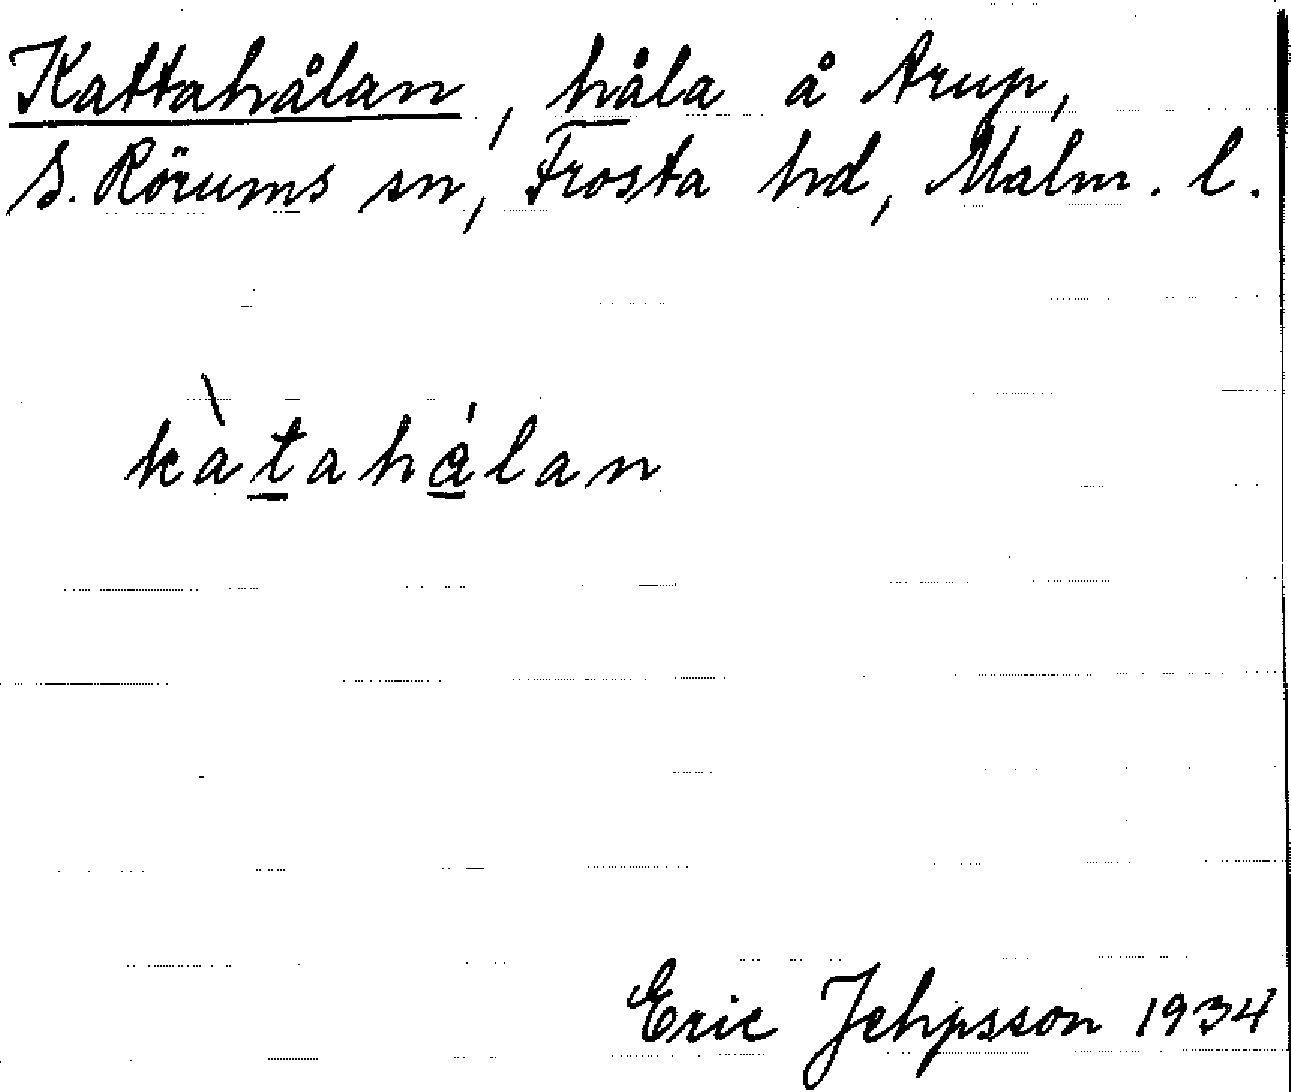 Kattahålan, håla å Arup,
S. Rörums sn, Frosta hd, Malm. l.
kàtahálan
Eric Jehpsson 1934